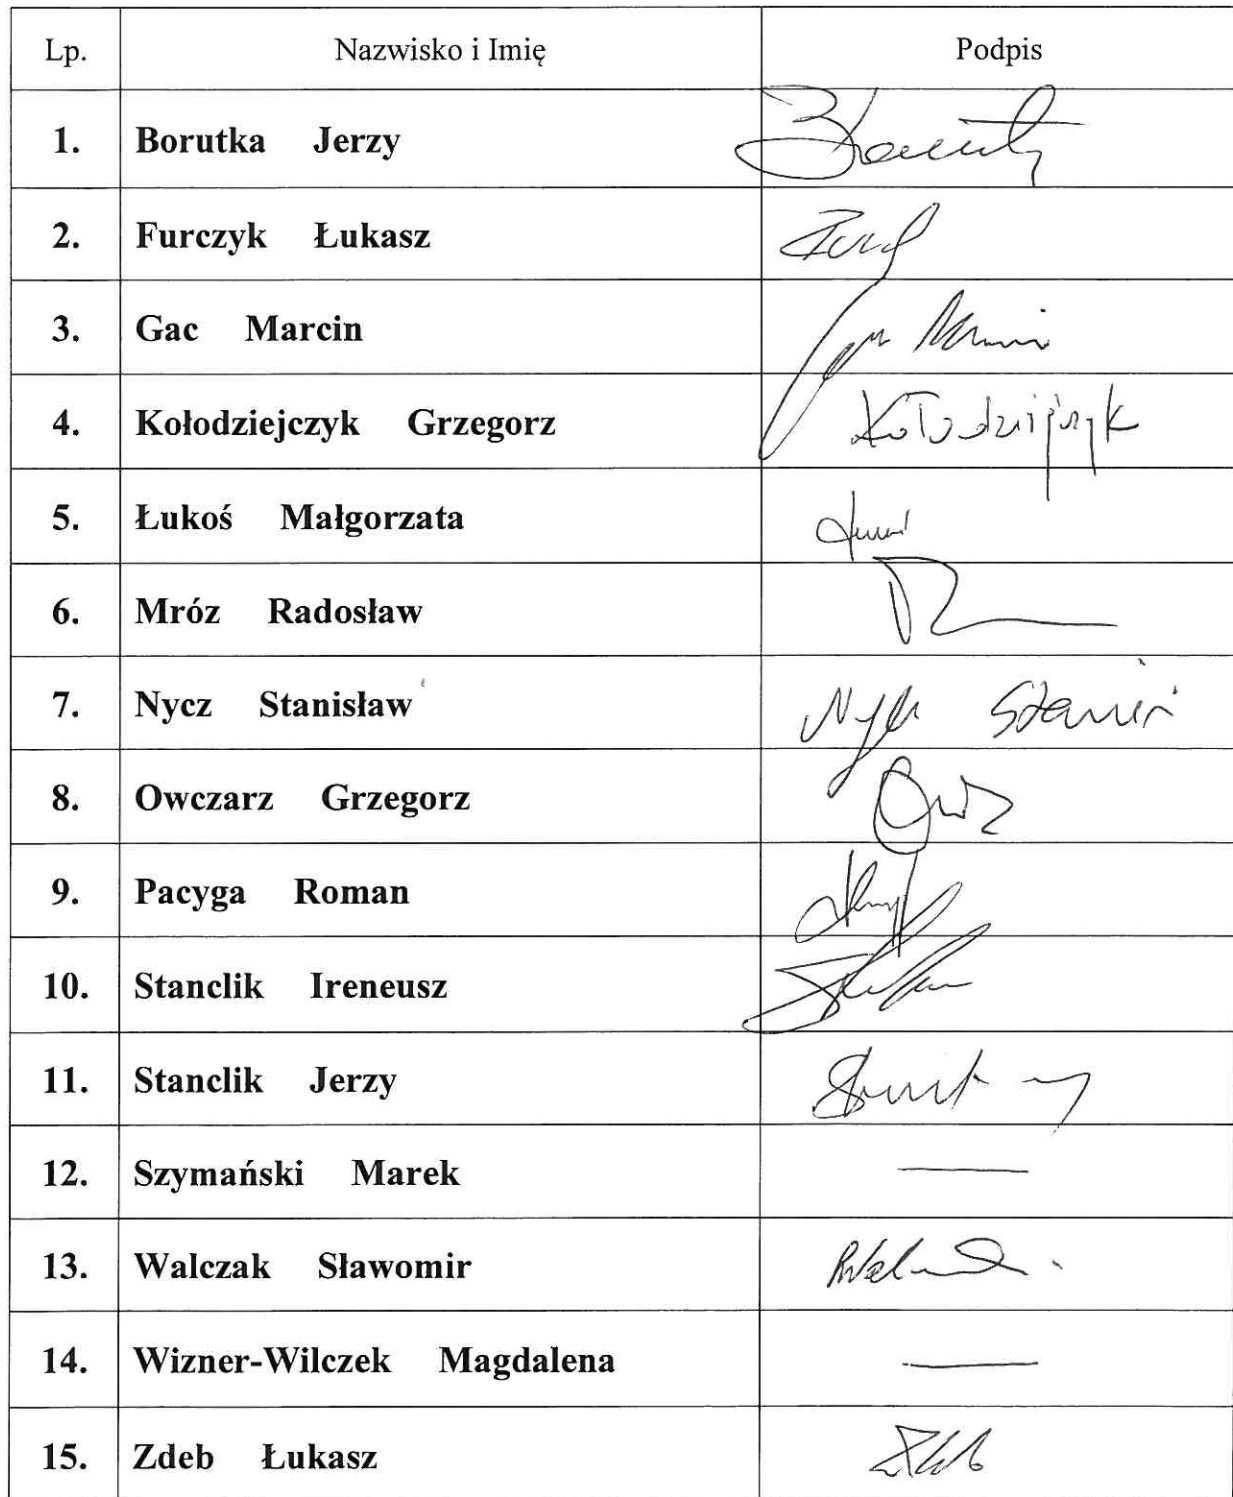 Lp. Nazwisko i Imię Podpis
1. Borutka Jerzy
2. Furczyk Łukasz
3. Gac Marcin
4. Kołodziejczyk Grzegorz Kołodziejczyk
5. Łukoś Małgorzata
6. Mróz Radosław
7. Nycz Stanisław
8. Owczarz Grzegorz
9. Pacyga Roman
10. Stanclik Ireneusz
11. Stanclik Jerzy
12. Szymański Marek —
13. Walczak Sławomir
14. Wizner-Wilczek Magdalena —
15. Zdeb Łukasz